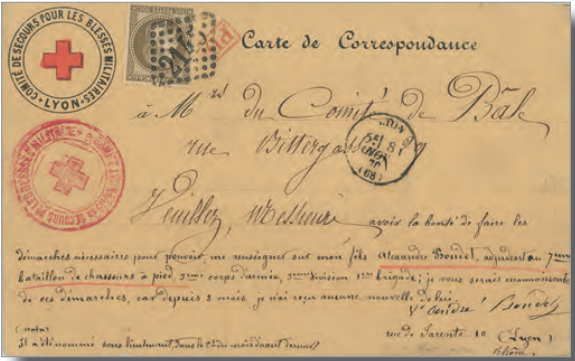 COMITÉ DE SECOURS POUR LES BLESSÉS MILITAIRES
• LYON •
2145
P.P.
Carte de Correspondance
à Mrs du Comité de Bâle
rue Rittergasse
LYON
18
NOV.
70
(68)
Veuillez, Messieurs avoir la bonté de faire les
démarches nécessaires pour pouvoir, me renseigner sur mon fils Alexandre Bondet, adjudant au 7ème
bataillon de chasseurs à pied, 3ème corps d'armée, division 1ère brigade; je vous serais reconnaissante
de ces démarches, car depuis 3 mois, je n'ai reçu aucune nouvelle de lui.
Ve André Bondet
rue de Jarente 10 (Lyon)
Rhône
(nota)
S'il a été nommé sous lieutenant, dans le